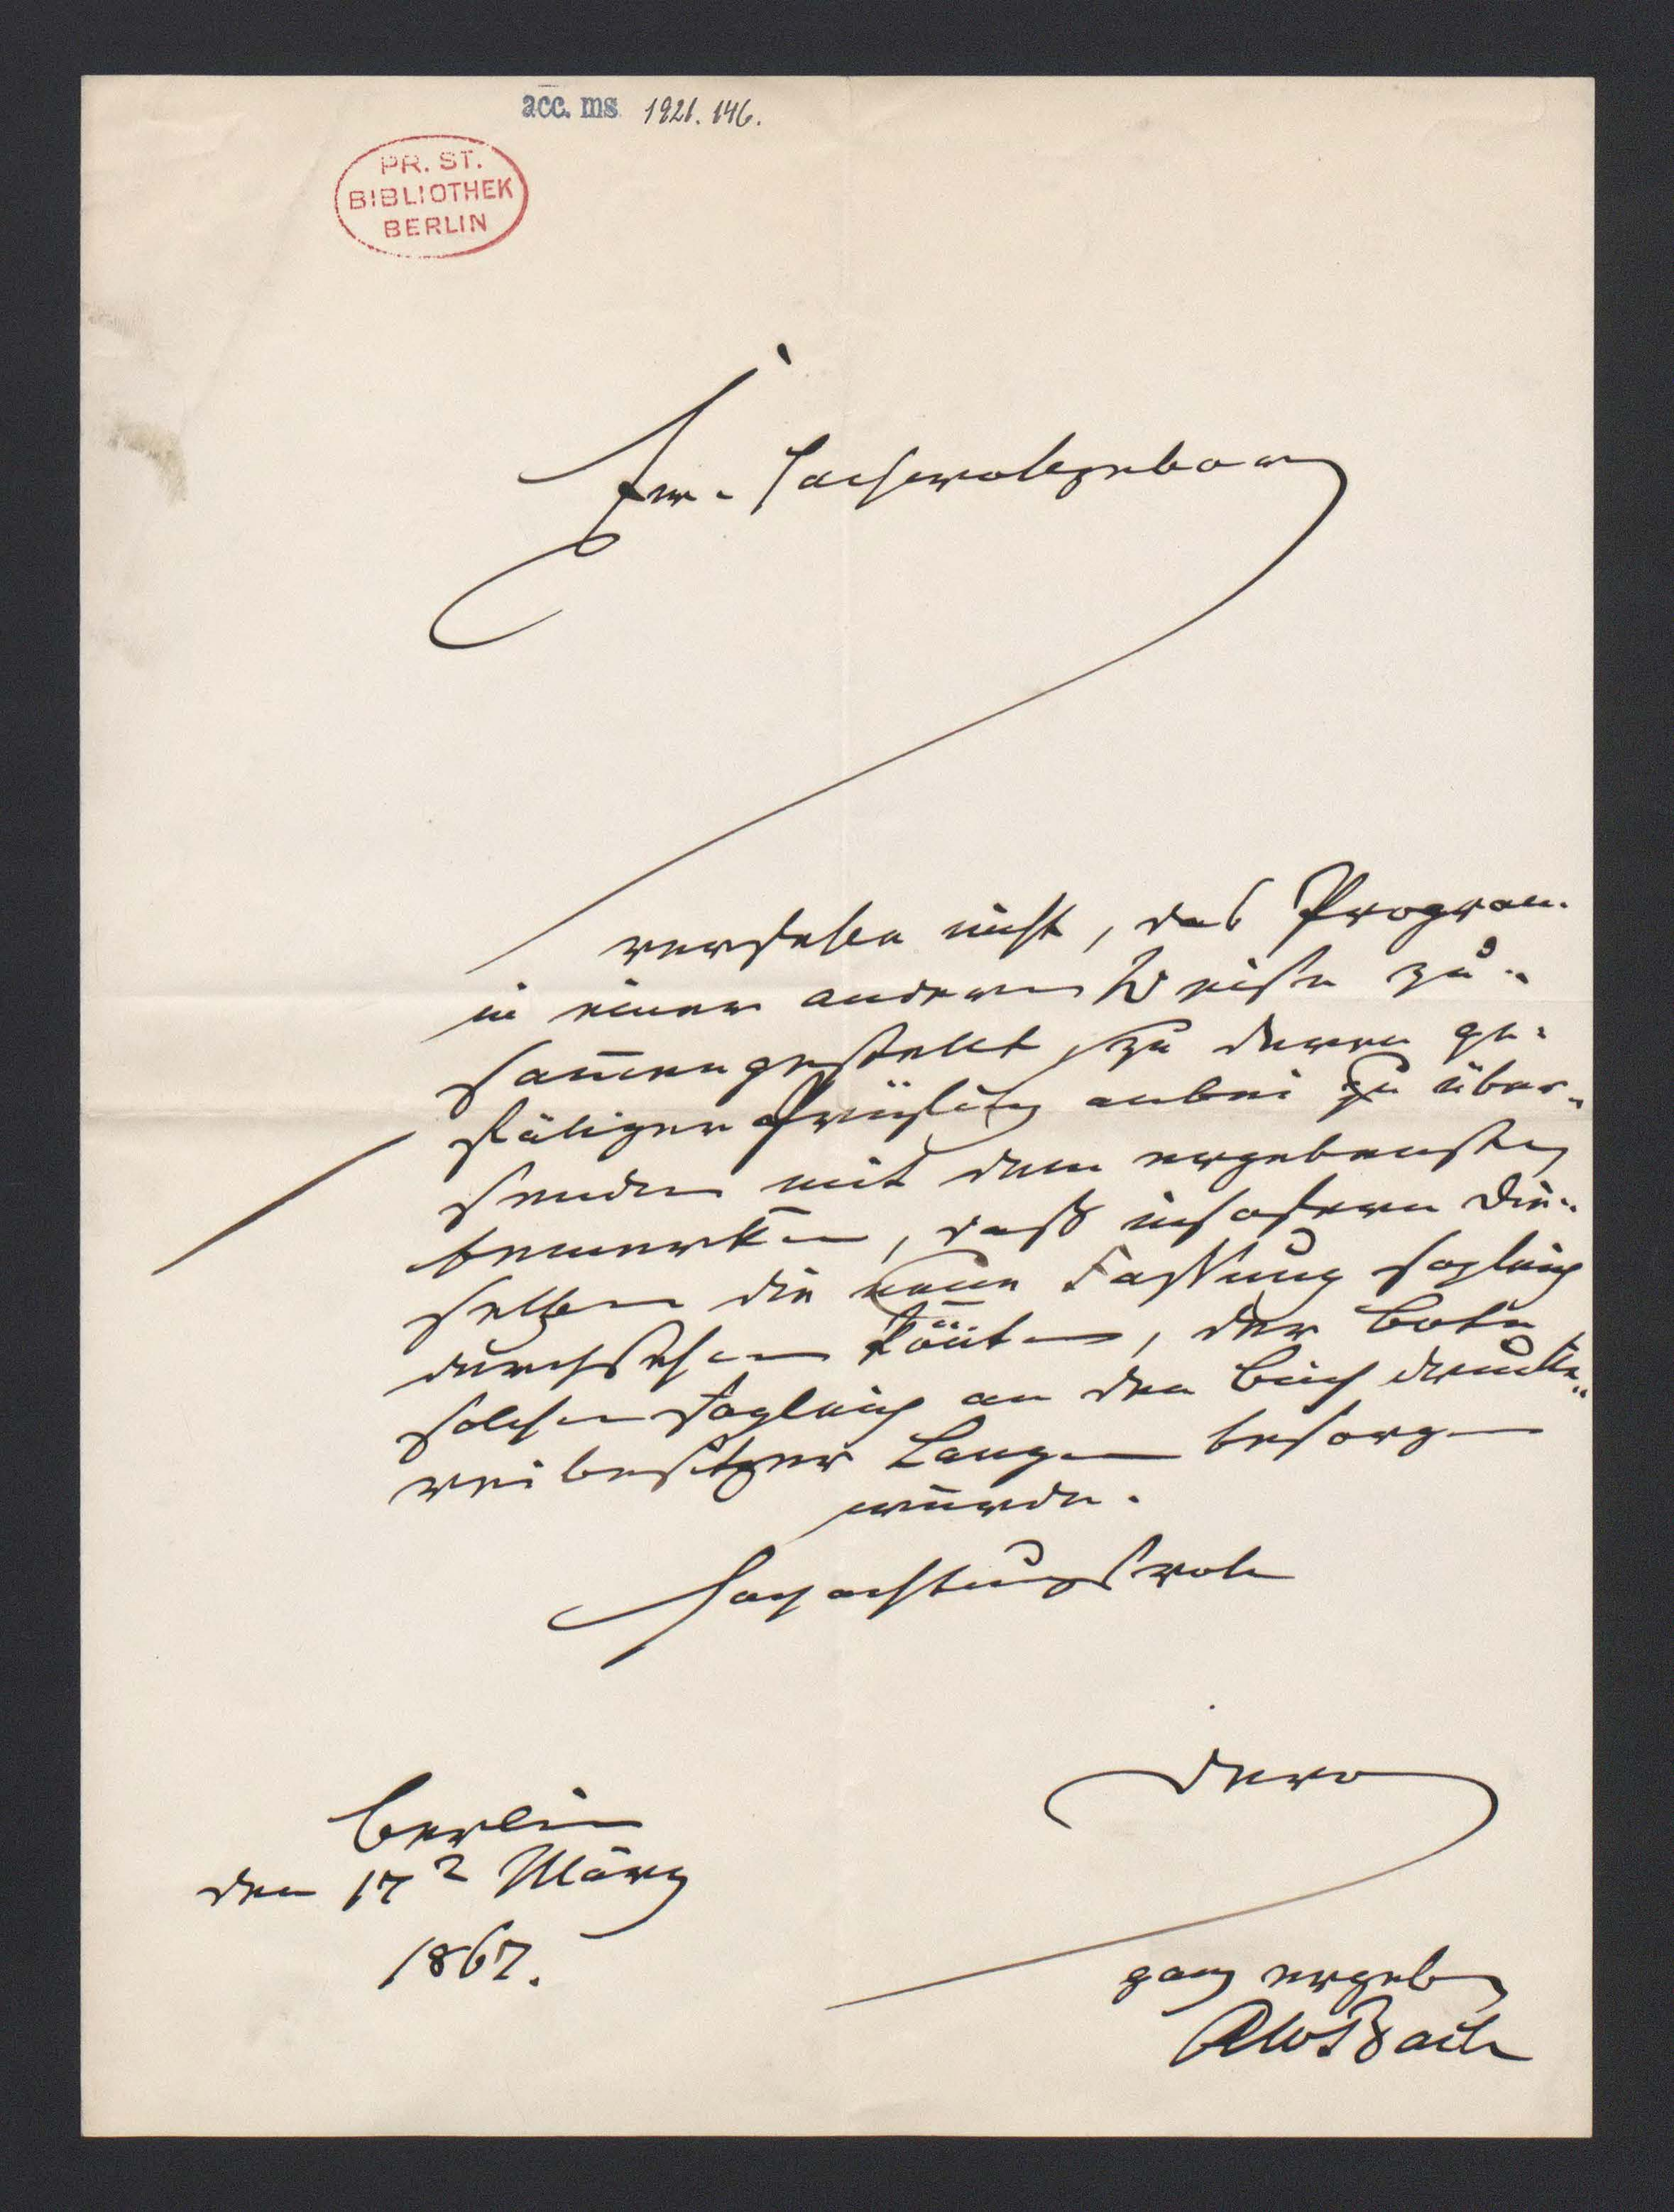 acc. ms 1921. 146.
PR. ST.
BIBLIOTHEK
BERLIN
Ew. Hochwohlgeborn
verfehle nicht, das Program̄
in einer anderen Weise zu-
sam̄engestellt, zu deren ge-
fäligen Prüfung anbei zu über-
senden mit dem ergebensten
bemerken, daß insofern Die-
selben die neue Fassung sogleich
durchsehen kön̄ten, der Bote
solche sogleich an den Buchdrucke-
reibesitzer Lange besorgen
würde.
Hochachtungsvoll
Dero
Berlin
den 17 März
1867.
ganz ergeb
AWBach